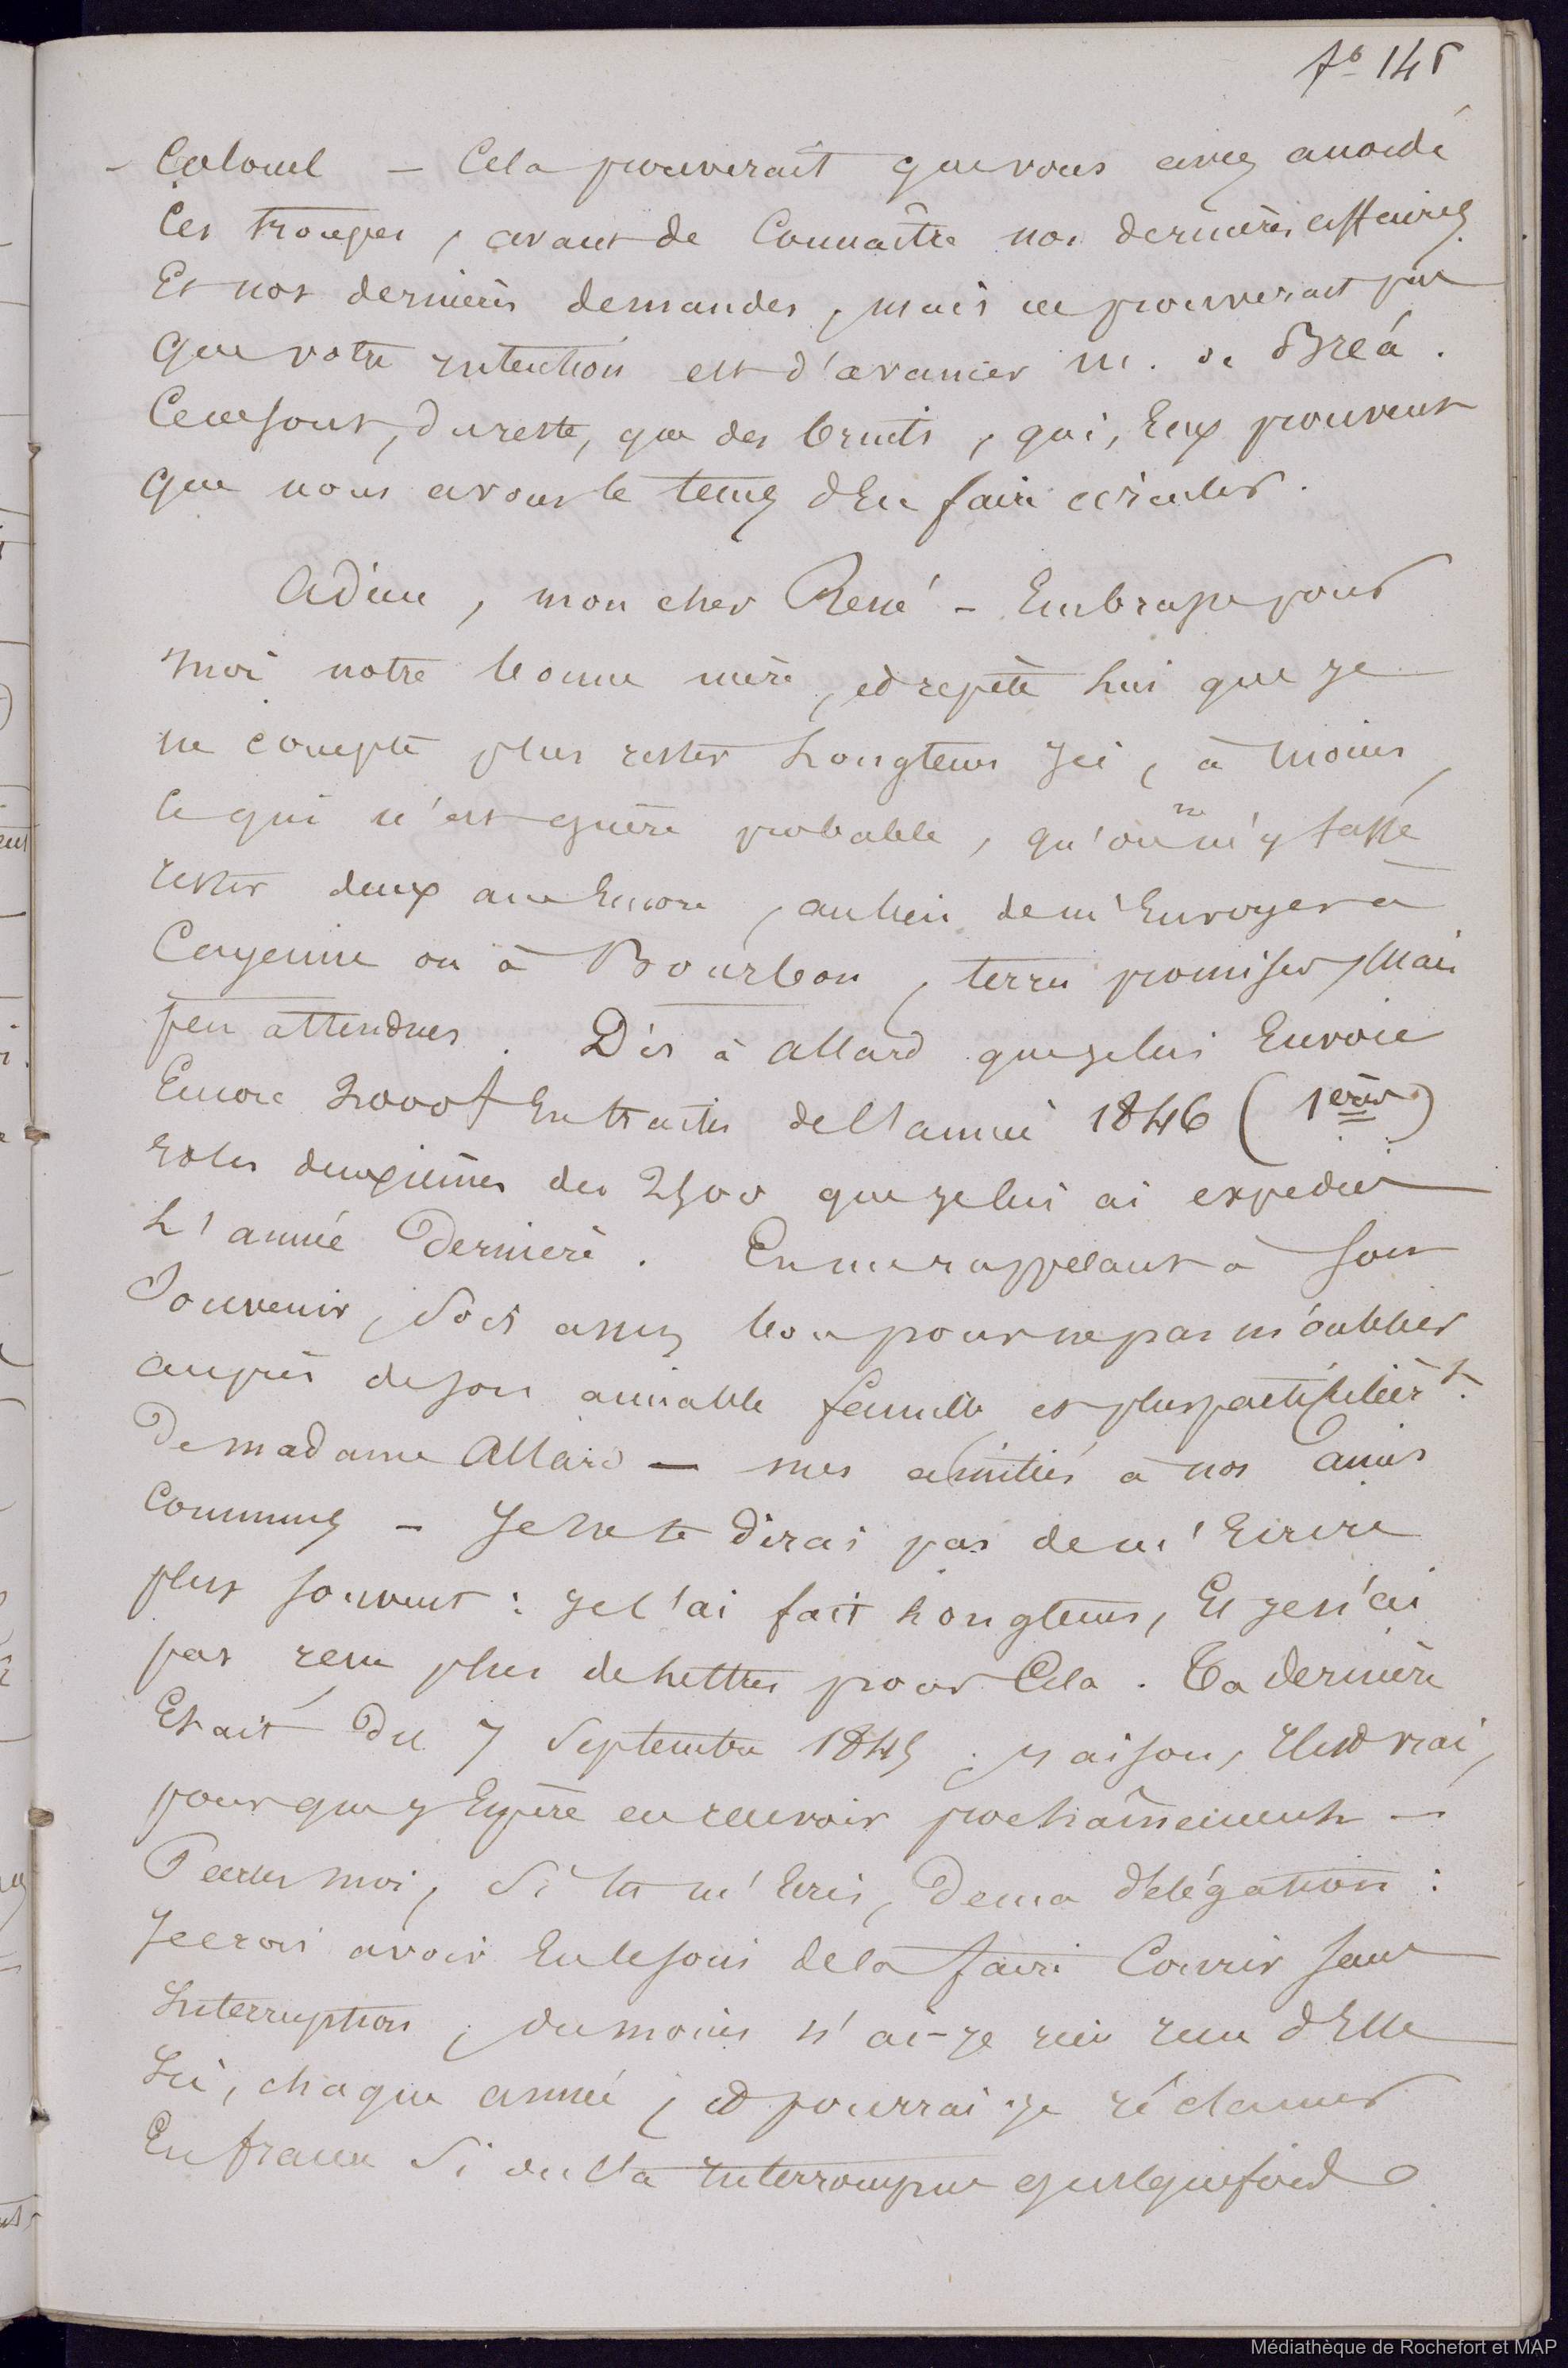 fo 145
- Colonel - Cela prouverait que vous avez accordé
Ces troupes, avant de Connaître nos dernières affaires
Et nos dernières demandes, mais ne prouverait pas
Que votre intention est d'avancer M. de Bréa.
Ce ne sont, du reste, que des bruits, qui, Eux prouvent
Que nous avons le tems d'En faire circuler.
Adieu, mon cher René - Embrasse pour
moi notre bonne mère, et repète lui que je
ne compte plus rester Longtems Ici, à moins,
ce qui n'est guère probable, qu'on ne m'y fasse
rester deux ans Encore, au lieu de m'Envoyer à
Cayenne ou à Bourbon, terres promises, Mais
peu attendues. Dis à Allard que je lui Envoie
Encore 2000f En traites de l'année 1846 (1eres)
et les deuxièmes des 2500 que je lui ai expediées
L'année Dernière. En me rappelant à Son
Souvenir, Sois assez bon pour ne pas m'oublier
auprès de son aimable famille et plus particulièrt.
De madame Allard - mes amitiés à nos amis
communs - Je ne te Dirai pas de m'Ecrire
plus souvent : je l'ai fait Longtems, Et je n'ai
pas reçu plus de Lettres pour Cela. Ta dernière
Etait Du 7 Septembre 1845. raison, Il est vrai,
pour que j'Espère en recevoir prochainement -
Parles moi, Si tu m'Ecris, De ma délégation :
Je crois avoir Eu le soin de la faire Courir sans
Interruption, du moins n'ai-je rien reçu d'Elle
Ici, chaque année, et pourrai-je réclamer
En france Si on l'a Interrompue quelquefois
Médiathèque de Rochefort et MAP